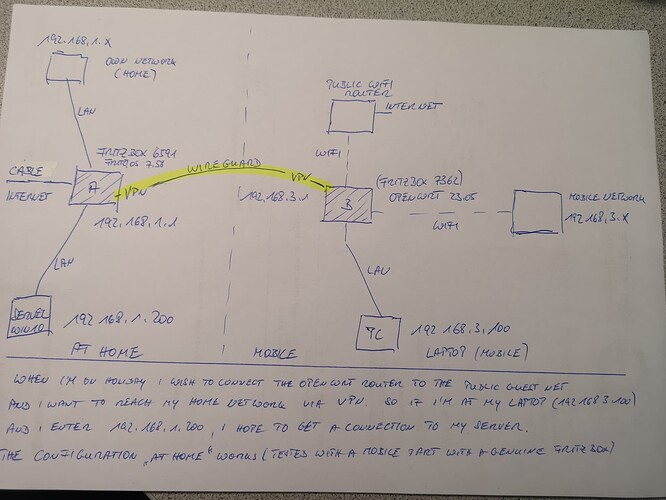 192.168.1.X
OWN NETWORK
(HOME)
LAN
PUBLIC WIFI
ROUTER
INTERNET
WIFI
FRITZBOX 6591
FRITZ OS 7.51
CABLE
INTERNET
A
VPN
WIREGUARD
VPN
192.168.3.1
B
(FRITZBOX 7362)
OPENWRT 23.05
WIFI
MOBILE NETWORK
192.168.3.X
192.168.1.1
LAN
LAN
SERVER
WIN10
192.168.1.200
192.168.3.100
LAPTOP (MOBILE)
AT HOME
MOBILE
WHEN I'M ON HOLIDAY I WISH TO CONNECT THE OPENWRT ROUTER TO THE PUBLIC GUEST NET
AND I WANT TO REACH MY HOME NETWORK VIA VPN. SO IF I'M AT MY LAPTOP (192.168 3.100)
AND I ENTER 192.168.1.200, I HOPE TO GET A CONNECTION TO MY SERVER.
THE CONFIGURATION „AT HOME" WORKS (TESTED WITH A MOBILE PART WITH A GENUINE FRITZBOX)